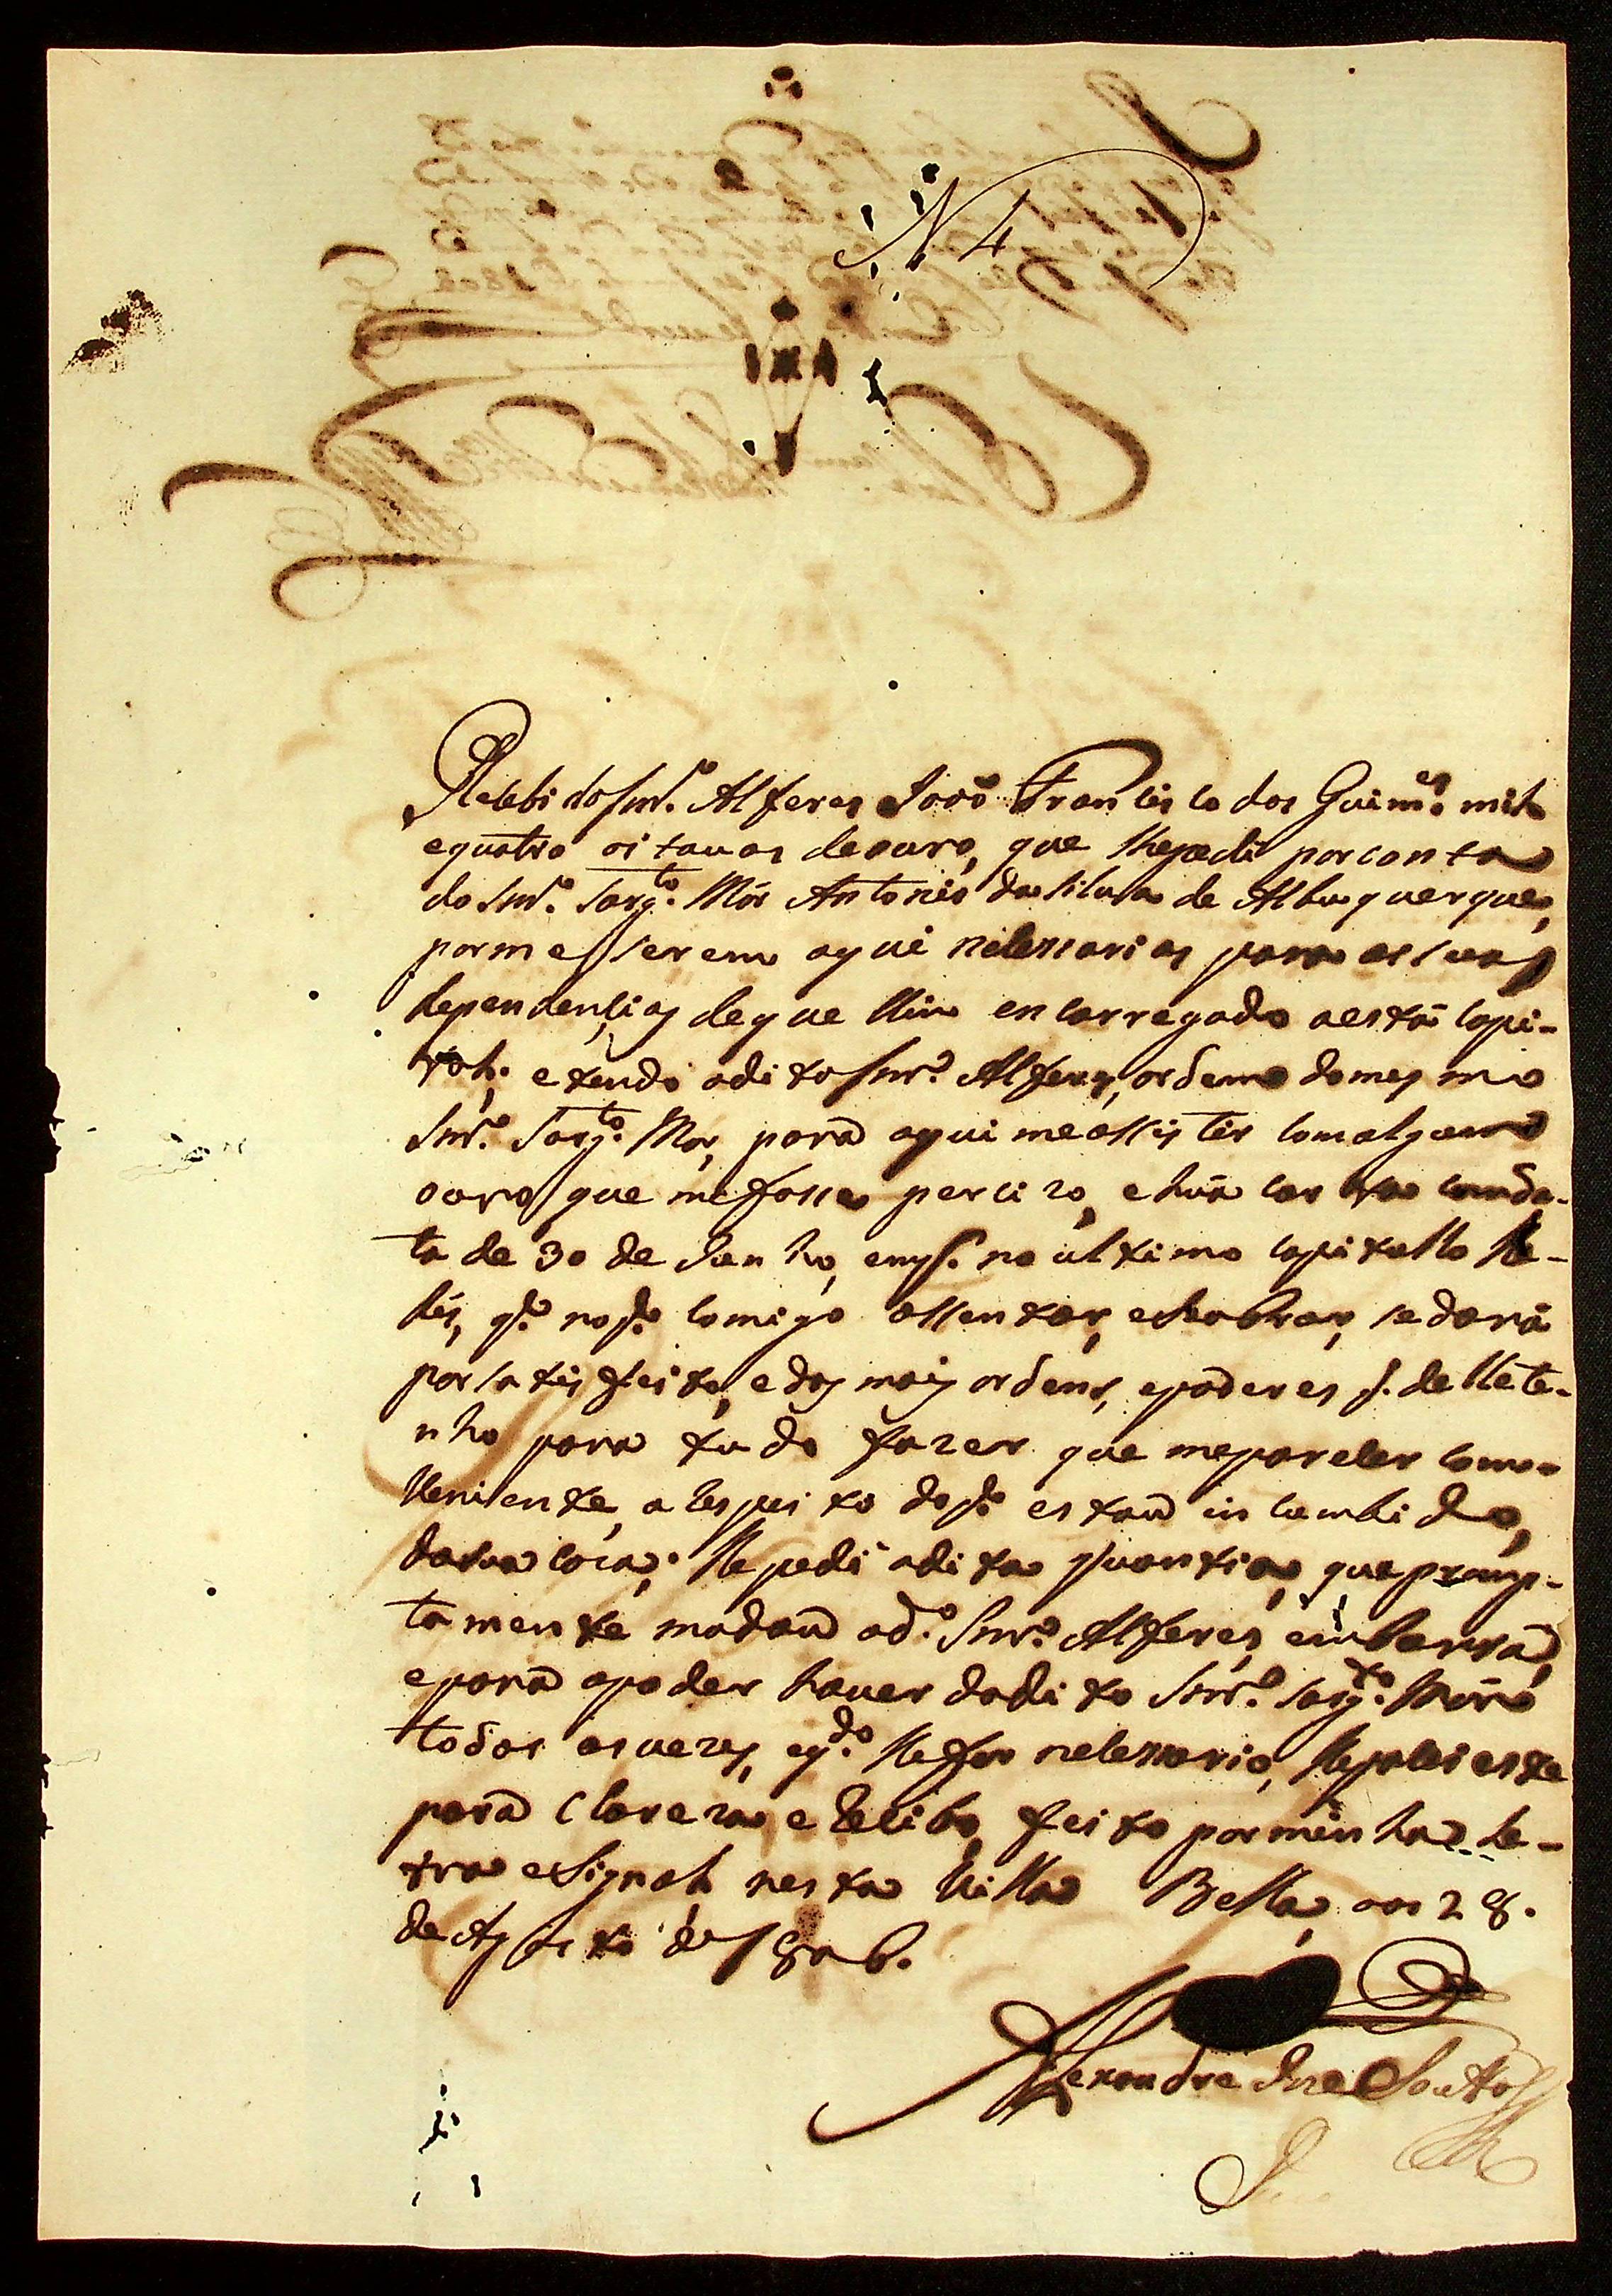 N 4
Recebi do Snr.º Alferes Joaõ Francisco dos Guim.es mil
e quatro oitauas de ouro, que lhe pedi por conta
do Snr.º Sarg.to Mór Antonio da Silua de Albuquerque,
por me serem aqui nesessarias para as suas
dependençias de que vim encarregado a esta Capi-
tal; e tendo o dito Snr.º Alferes, ordem do mesmo
Snr.º Sarg.to Mor, para aqui me assistir com algum
ouro que me fosse percizo, e huã carta com da-
ta de 30 de Junho, em q. no ultimo capitullo lhe
diz, q. no q. comigo assentar, e obrar, se dará
por satisfeito, e das mais ordens, e poderes q. delle te-
nho para tudo fazer que me pareser com-
veniente, a respeito do q. estou incumbido,
da sua caza; lhe pedi a dita quantia, que promp-
tamente me dou o d.º Snr.º Alferes, em barra,
e para a poder hauer do dito Snr.º Sarg.to Mór
todas as vezes, e q.do lhe for nesessario, lhe pasei este
para clareza e recibo, feito por minha le-
tra e signal nesta Villa Bella, aos 28.
de Agosto de 1806.
Alexandre Jozé Couto